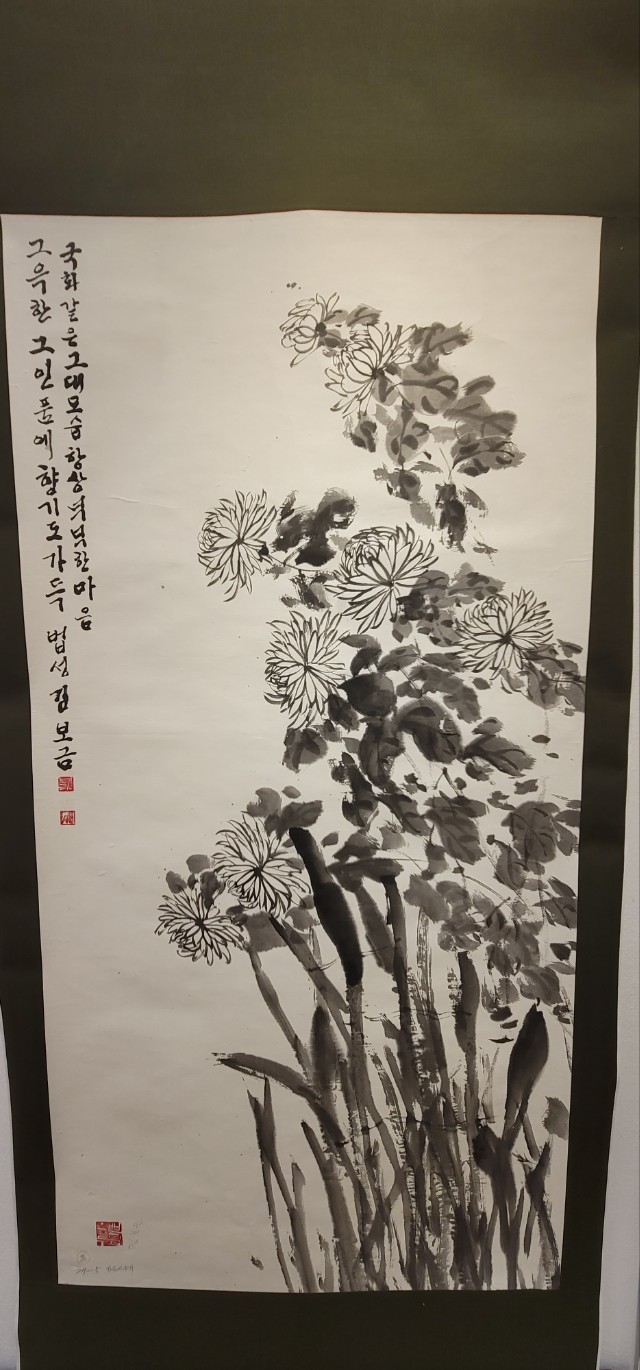 국화같은그대모습항상넉넉한마음
그윽한 그인품에 향기도가득 법성김보금